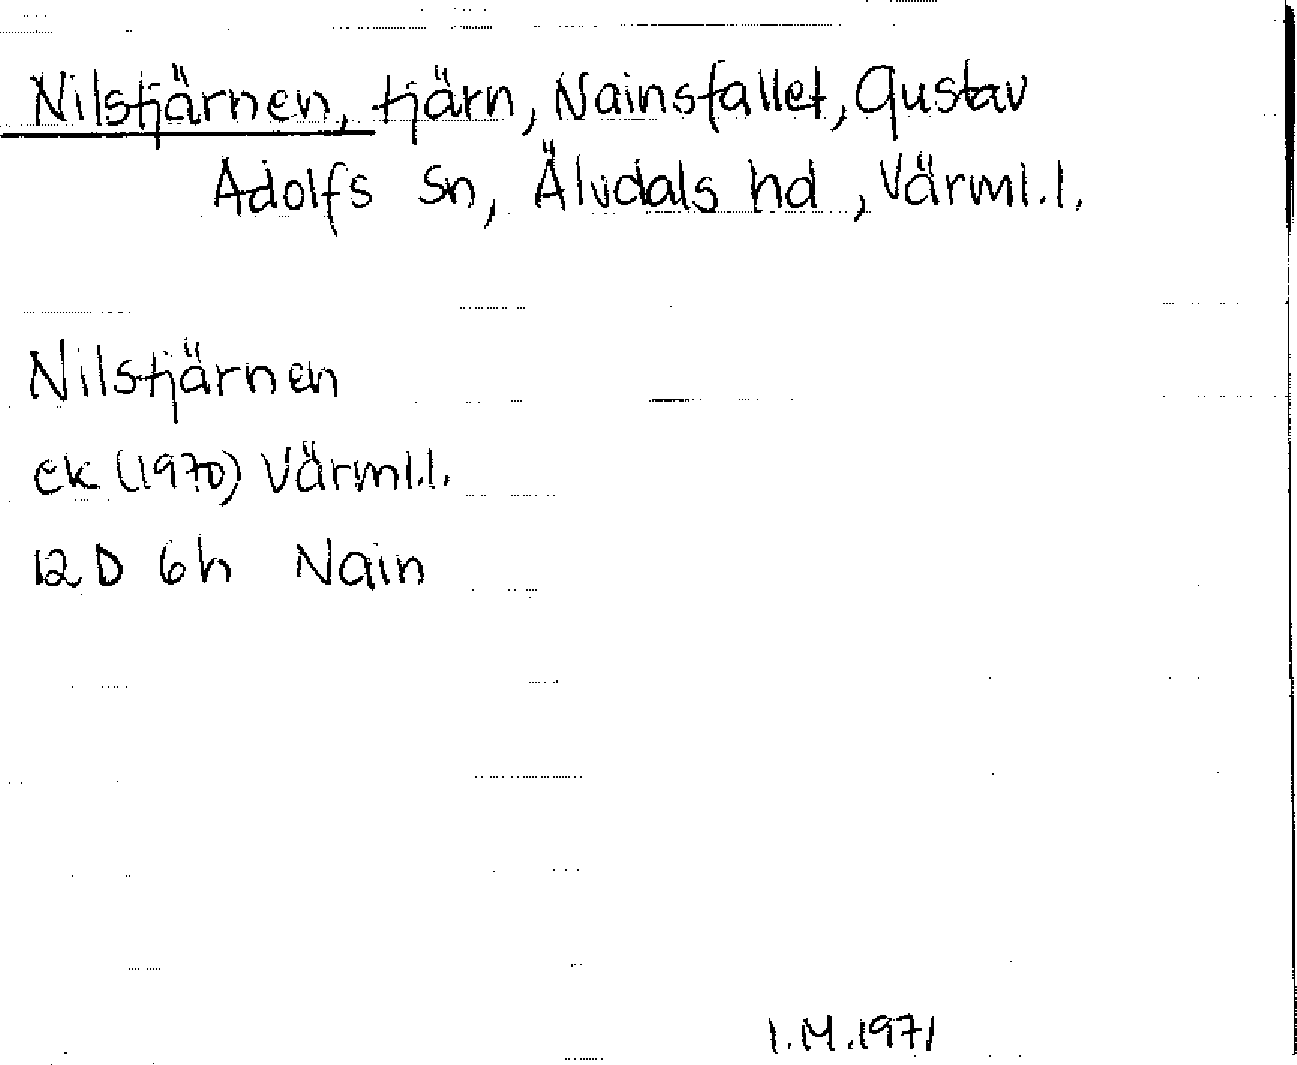 Nilstjärnen, tjärn, Nainsfallet, Gustav
Adolfs Sn, Älvdals hd, Värml.l.
Nilstjärnen
ek (1970) Värml.l.
12 D 6h Nain
I.M.1971